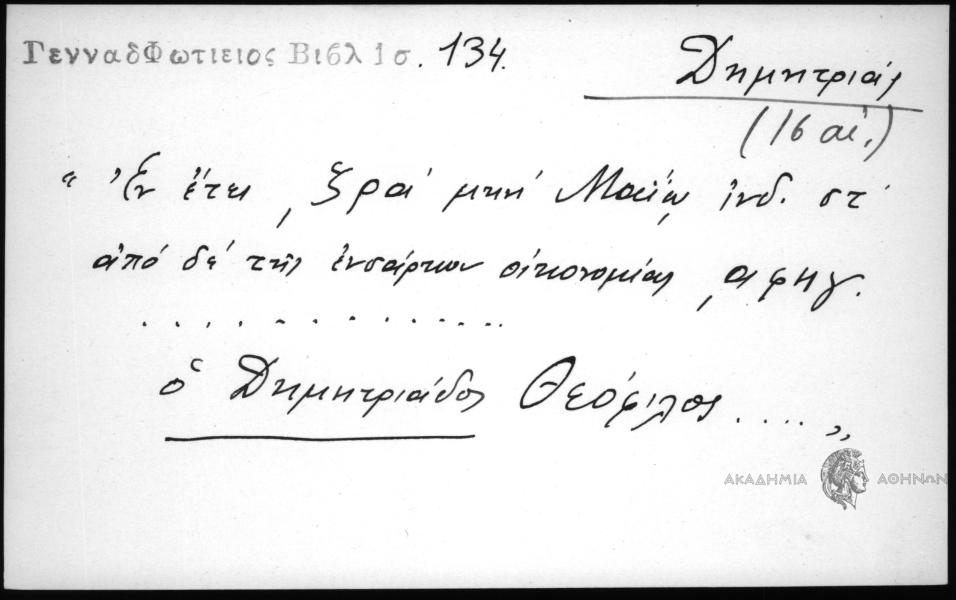 ΓενναδΦωτιειος Βιβλ 1σ. 134.
Δημητριάς
(16 αἰ.)
" Ἐν ἔτει ͵ζραʹ μηνὶ Μαΐῳ ἰνδ. στʹ
ἀπό δέ τῆς ἐνσάρκου οἰκονομίας ͵αφηγ.
. . . . . . . . . . . . . .
ὁ Δημητριάδος Θεόφιλος ..... „
ΑΚΑΔΗΜΙΑ ΑΘΗΝΩΝ